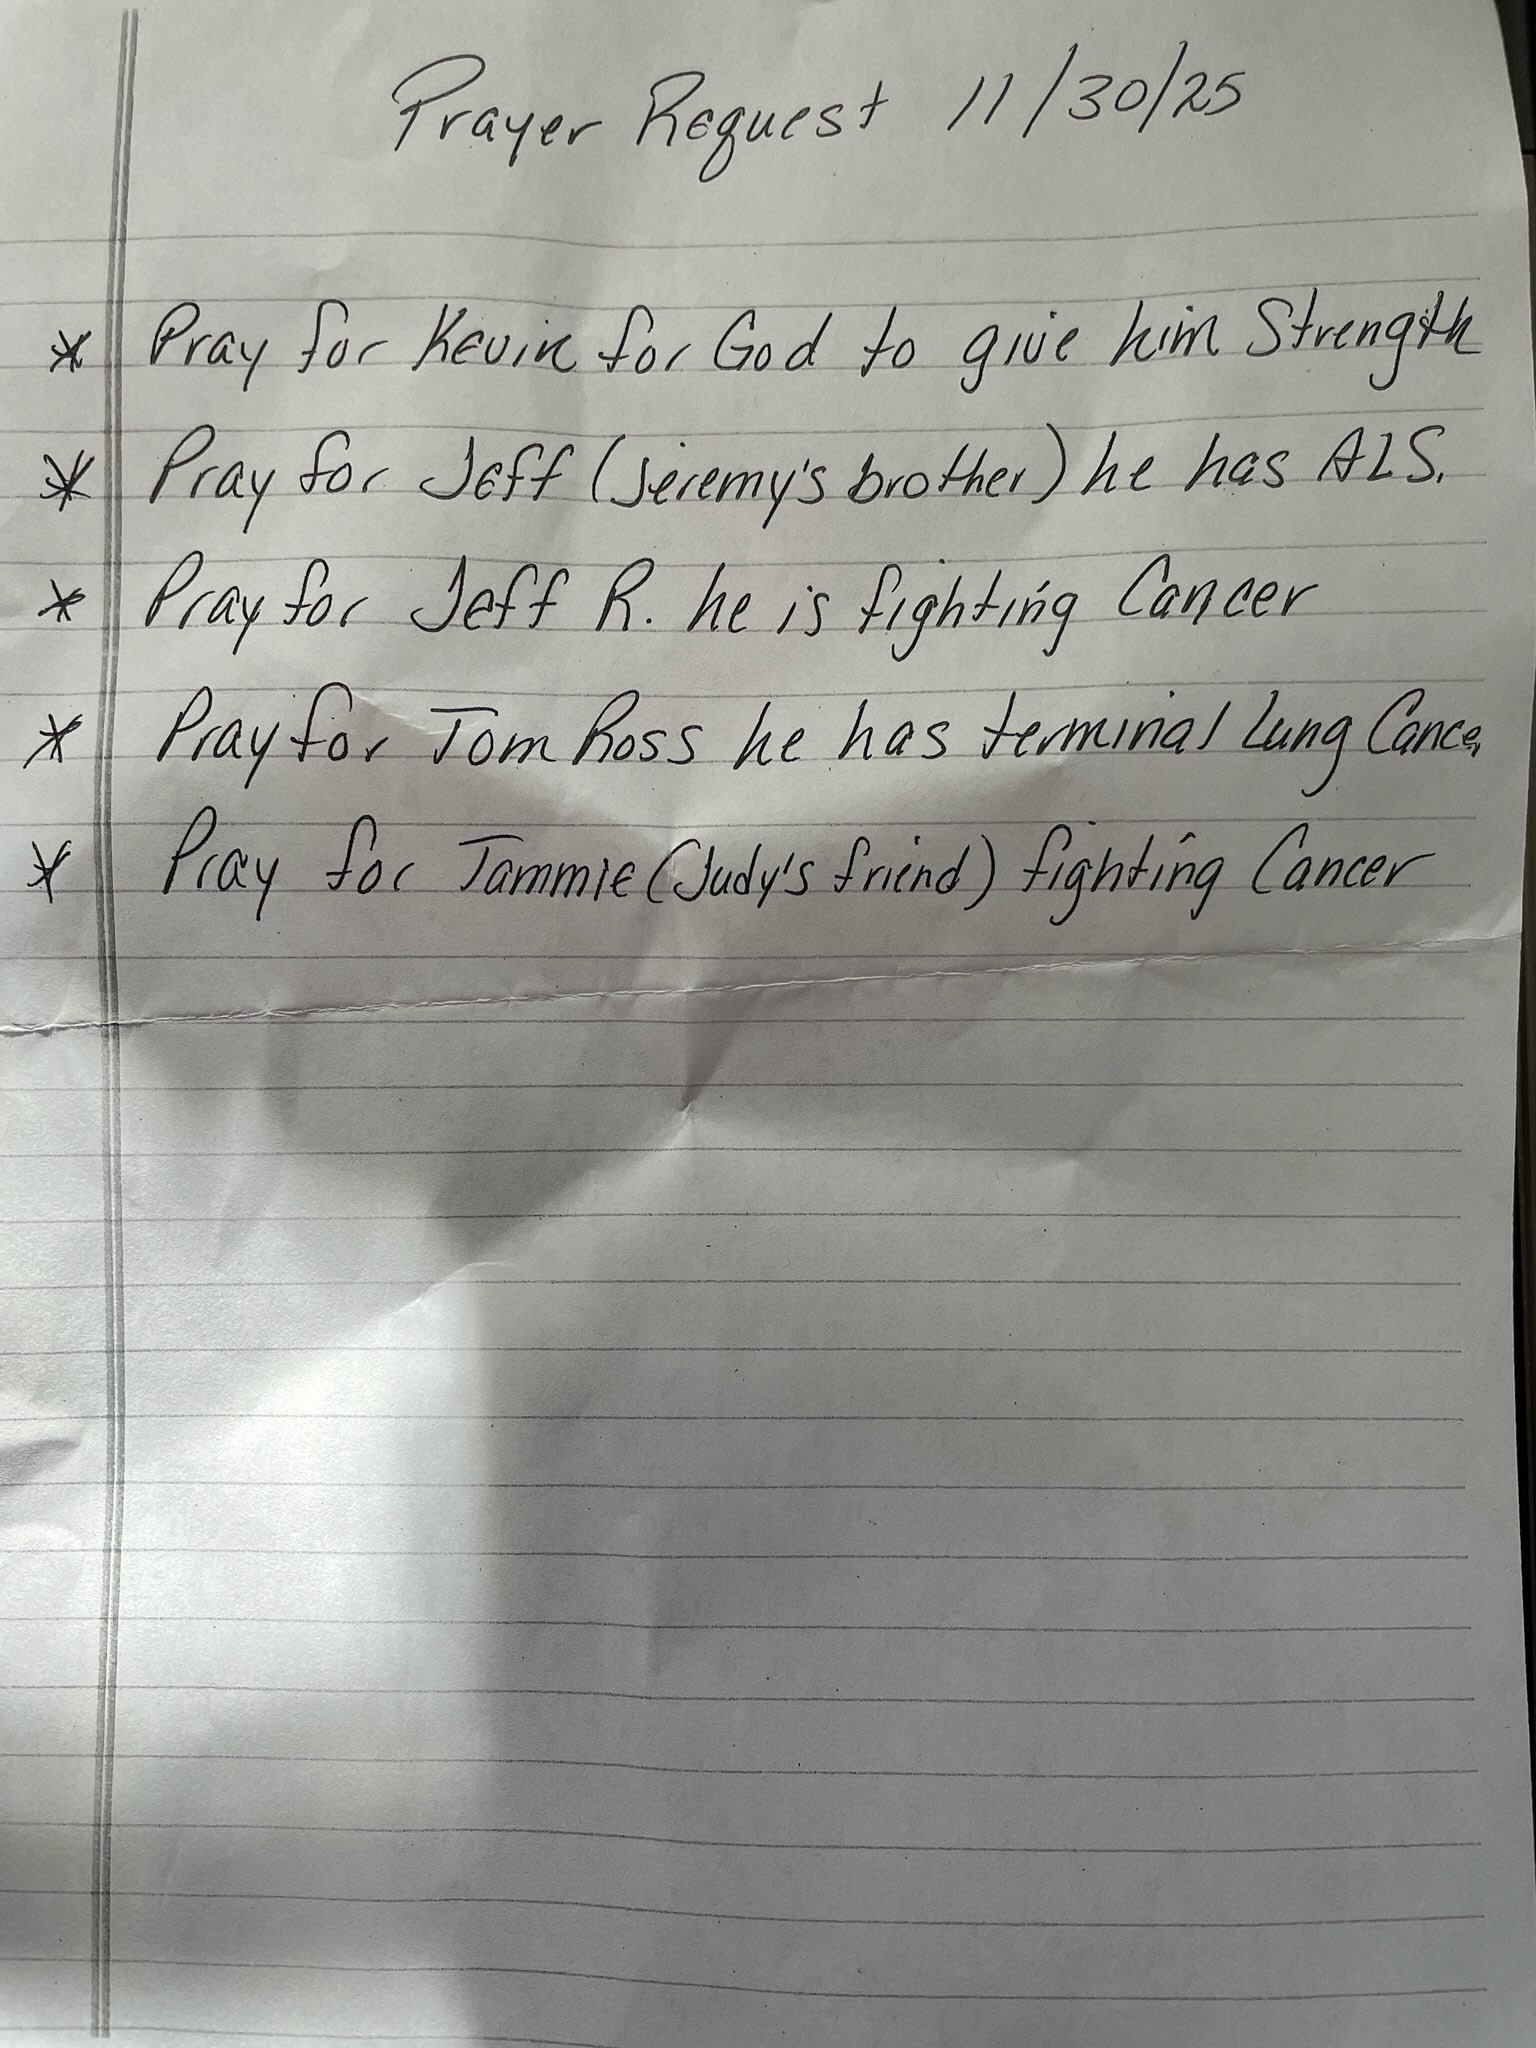 Prayer Request 11/30/25
* Pray for Kevin for God to give him Strength
* Pray for Jeff (Jeremy's brother) he has ALS.
* Pray for Jeff R. he is fighting Cancer
* Pray for Tom Ross he has terminal Lung Cancer
* Pray for Tammie (Judy's friend) fighting Cancer